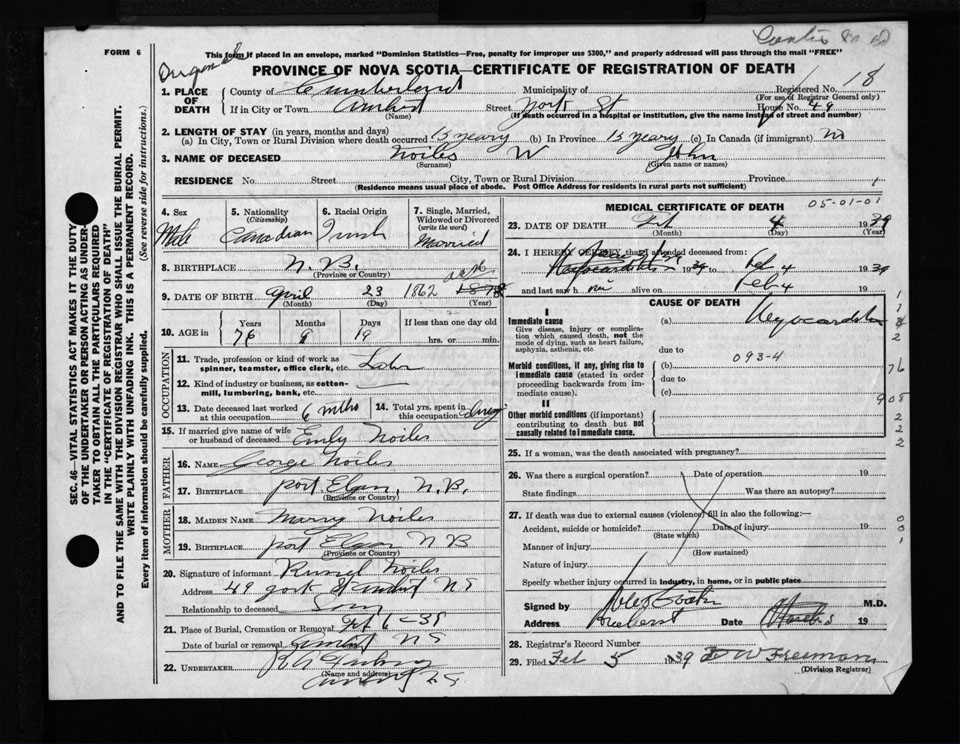 FORM 6
This form if placed in an envelope, marked "Dominion Statistics—Free, penalty for improper use $300," and properly addressed will pass through the mail "FREE"
PROVINCE OF NOVA SCOTIA—CERTIFICATE OF REGISTRATION OF DEATH
1. PLACE OF DEATH
County of Cumberland Municipality of Registered No. 18
(For use of Registrar General only)
If in City or Town Amherst Street York St House No. 49
(Name) (If death occurred in a hospital or institution, give the name instead of street and number)
2. LENGTH OF STAY (in years, months and days)
(a) In City, Town or Rural Division where death occurred 13 years (b) In Province 13 years (c) In Canada (if immigrant) no
3. NAME OF DECEASED Noiles W John
(Surname) (Given name or names)
RESIDENCE No. Street City, Town or Rural Division Province
(Residence means usual place of abode. Post Office Address for residents in rural parts not sufficient)
4. Sex Male
5. Nationality (Citizenship) Canadian
6. Racial Origin Irish
7. Single, Married, Widowed or Divorced (write the word) Married
8. BIRTHPLACE N.B.
(Province or Country)
9. DATE OF BIRTH April 23 1862
(Month) (Day) (Year)
10. AGE in Years Months Days If less than one day old
76 9 19 hrs. or min.
OCCUPATION
11. Trade, profession or kind of work as spinner, teamster, office clerk, etc. Labor
12. Kind of industry or business, as cotton-mill, lumbering, bank, etc.
13. Date deceased last worked at this occupation 6 mths
14. Total yrs. spent in this occupation
15. If married give name of wife or husband of deceased Emily Noiles
FATHER
16. NAME George Noiles
17. BIRTHPLACE Port Elgin, N.B.
(Province or Country)
MOTHER
18. MAIDEN NAME Marry Noiles
19. BIRTHPLACE Port Elgin N B
(Province or Country)
20. Signature of informant Russel Noiles
Address 49 York St Amherst N S
Relationship to deceased Son
21. Place of Burial, Cremation or Removal
Date of burial or removal Feb 6-39
22. UNDERTAKER
(Name and address)
MEDICAL CERTIFICATE OF DEATH
05-01-01
23. DATE OF DEATH Feb 4 1939
(Month) (Day) (Year)
24. I HEREBY CERTIFY that I attended deceased from:
1939 to Feb 4 1939
and last saw h alive on Feb 4 19
CAUSE OF DEATH
I
Immediate cause
Give disease, injury or complication which caused death, not the mode of dying, such as heart failure, asphyxia, asthenia, etc.
(a) Myocarditis
due to
093-4
Morbid conditions, if any, giving rise to immediate cause (stated in order proceeding backwards from immediate cause).
(b)
due to
(c)
II
Other morbid conditions (if important) contributing to death but not causally related to immediate cause.
25. If a woman, was the death associated with pregnancy?
26. Was there a surgical operation? Date of operation 19
State findings Was there an autopsy?
27. If death was due to external causes (violence) fill in also the following:—
Accident, suicide or homicide? Date of injury 19
(State which)
Manner of injury
(How sustained)
Nature of injury
Specify whether injury occurred in industry, in home, or in public place
Signed by M.D.
Address Amherst Date 19
28. Registrar's Record Number
29. Filed Feb 5 1939 Freeman
(Division Registrar)
SEC. 46—VITAL STATISTICS ACT MAKES IT THE DUTY OF THE UNDERTAKER OR PERSON ACTING AS UNDERTAKER TO OBTAIN ALL THE PARTICULARS REQUIRED IN THE "CERTIFICATE OF REGISTRATION OF DEATH"
AND TO FILE THE SAME WITH THE DIVISION REGISTRAR WHO SHALL ISSUE THE BURIAL PERMIT.
WRITE PLAINLY WITH UNFADING INK. THIS IS A PERMANENT RECORD.
Every item of information should be carefully supplied. (See reverse side for instructions.)